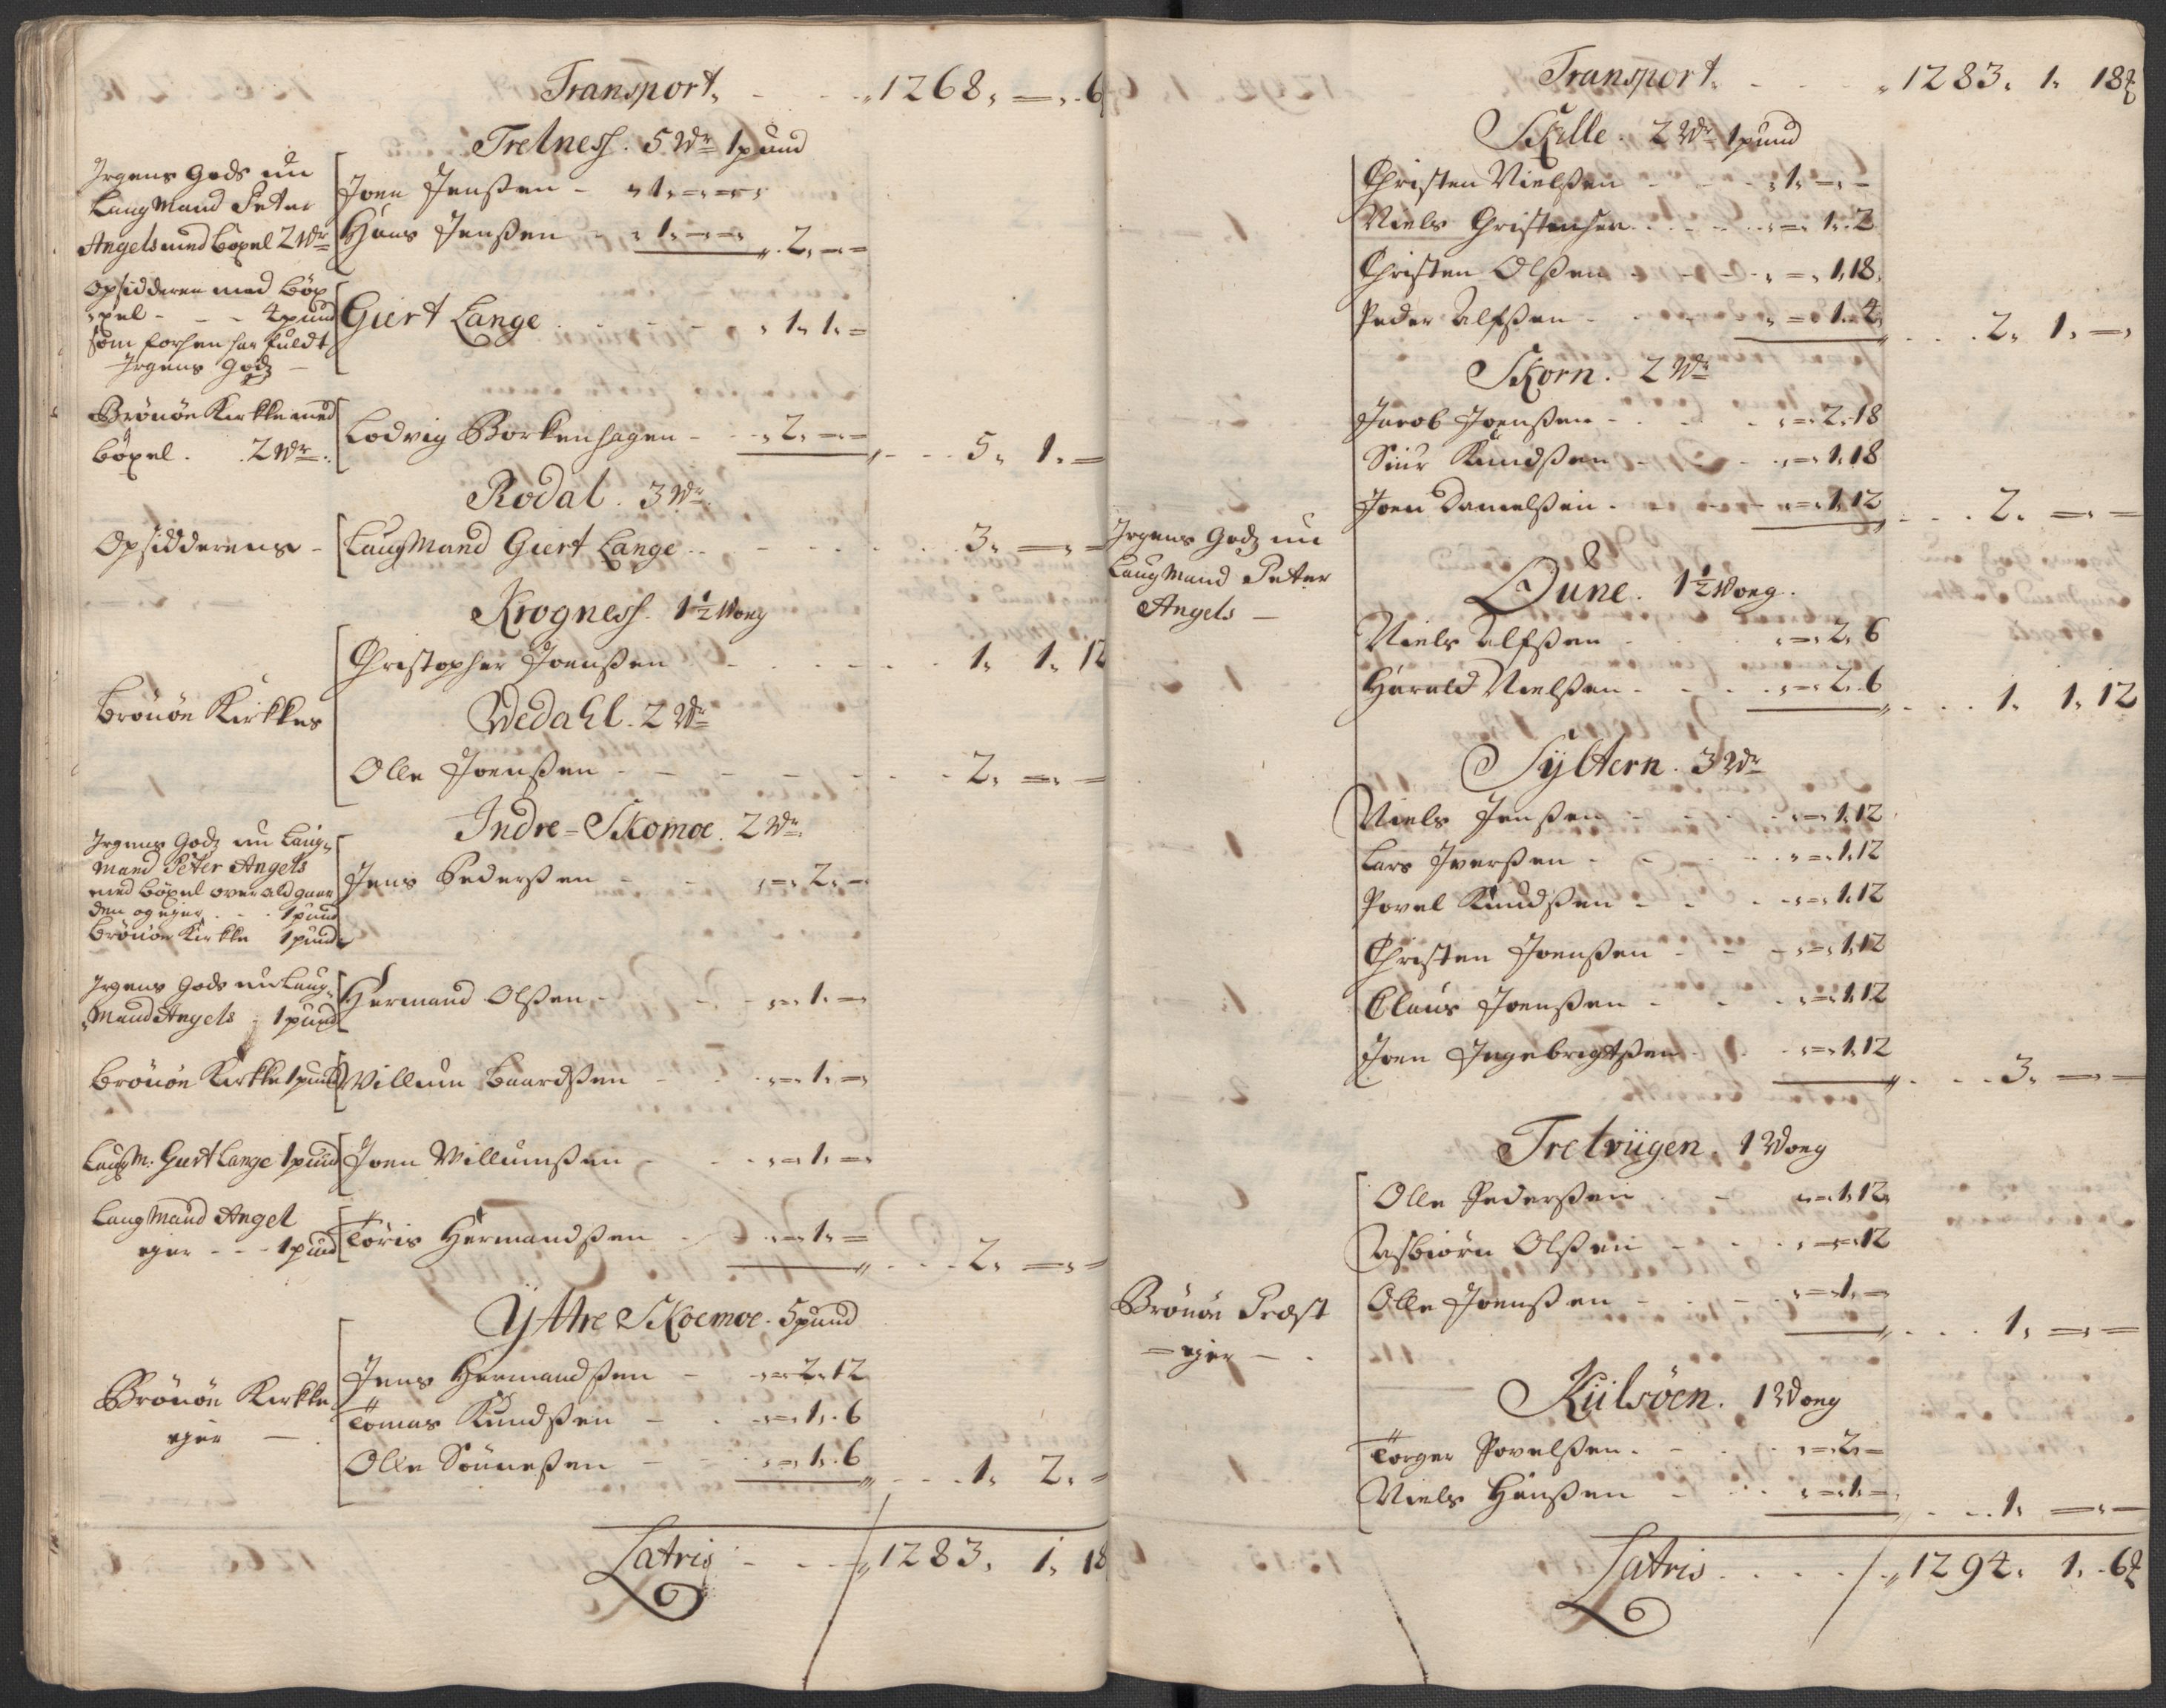 Transport. - - - 1268. =. 6
Tretness. 5 Wr 1 pund
Jrgens Gods nu
Laugmand Peter
Angels med böxel 2 Wr
Joen Jenßen - " 1. =. =
Hans Jenßen - " 1. =. = 2. =. =
Opsidderen med böx
xel - - - 4 pund
som forhen har fuldt
Jrgens Godz -
Giert Lange - - - 1. 1. =
Brönöe Kirkke med
böxel. 2 Wr
Lodvig Borkenhagen - - 2. =. = - - 5. 1. =
Rodal. 3 Wr
Opsidderens -
LaugMand Giert Lange - - - 3. =. =
Krogness. 1½ Woeg
Christopher Joenßen - - - 1. 1. 12
Brönöe Kirkkes
Wedahl. 2 Wr
Olle Joenßen - - - 2. =. =
Indre=Skomoe. 2 Wr
Jrgens Godz nu Laug=
mand Peter Angels
med böxel over ald gaar
den og ejer. - - 1 pund
Brönöe Kirkke 1 pund
Jens Pederßen - - =. 2. =
Jrgens Gods nu Laug=
Mand Angels - 1 pund
Hermand Olßen - - =. 1. =
Brönöe Kirkke 1 pund
Willum Baardßen - - =. 1. =
Laugm: Giert Lange 1 pund
Joen Willumßen - - =. 1. =
LaugMand Angel
ejer - - - 1 pund
Töris Hermandßen - - =. 1. = - - 2. =. =
Yttre Skoemoe. 5 pund
Brönöe Kirkke
ejer -
Jens Hermandßen - =. 2. 12
Tömas Kundßen - - =. 1. 6
Olle Sönneßen - - =. 1. 6 - - 1. 2. =
Latris - - - 1283. 1. 18
Transport. - - - 1283. 1. 18
Skille. 2 Wr 1 pund
Christen Nielßen - - - 1. =. =
Niels Christensen - - - =. 1. 2
Christen Olßen - - - =. 1. 18
Peder Alfßen - - - =. 1. 4 - - 2. 1. =
Skorn. 2 Wr
Jacob Joenßen - - - =. 2. 18
Siur Kundßen - - - =. 1. 18
Joen Danielßen - - - =. 1. 12 - - 2. =. =
Jrgens Godz nu
LaugMand Peter
Angels -
Dune. 1½ Woeg.
Niels Alfßen - - =. 2. 6
Harald Nielßen - - - =. 2. 6 - - 1. 1. 12
Syltern. 3 Wr
Niels Jenßen - - - =. 1. 12
Lars Jverßen - - - =. 1. 12
Povel Kundßen - - - =. 1. 12
Christen Joenßen - - =. 1. 12
Claus Joenßen - - - =. 1. 12
Joen Jngebrigtßen - - =. 1. 12 - - 3. =. =
Tretviigen. 1 Woeg
Olle Pederßen - - =. 1. 12
Asbiörn Olßen - - - =. =. 12
Brönöe Præst
= ejer - .
Olle Joenßen - - - =. 1. = - - 1. =. =
Kiilsöen. 1 Woeg
Törger Povelßen. - - =. 2. =
Niels Hanßen - - - =. 1. = - - 1. =. =
Latris - - - 1294. 1. 6